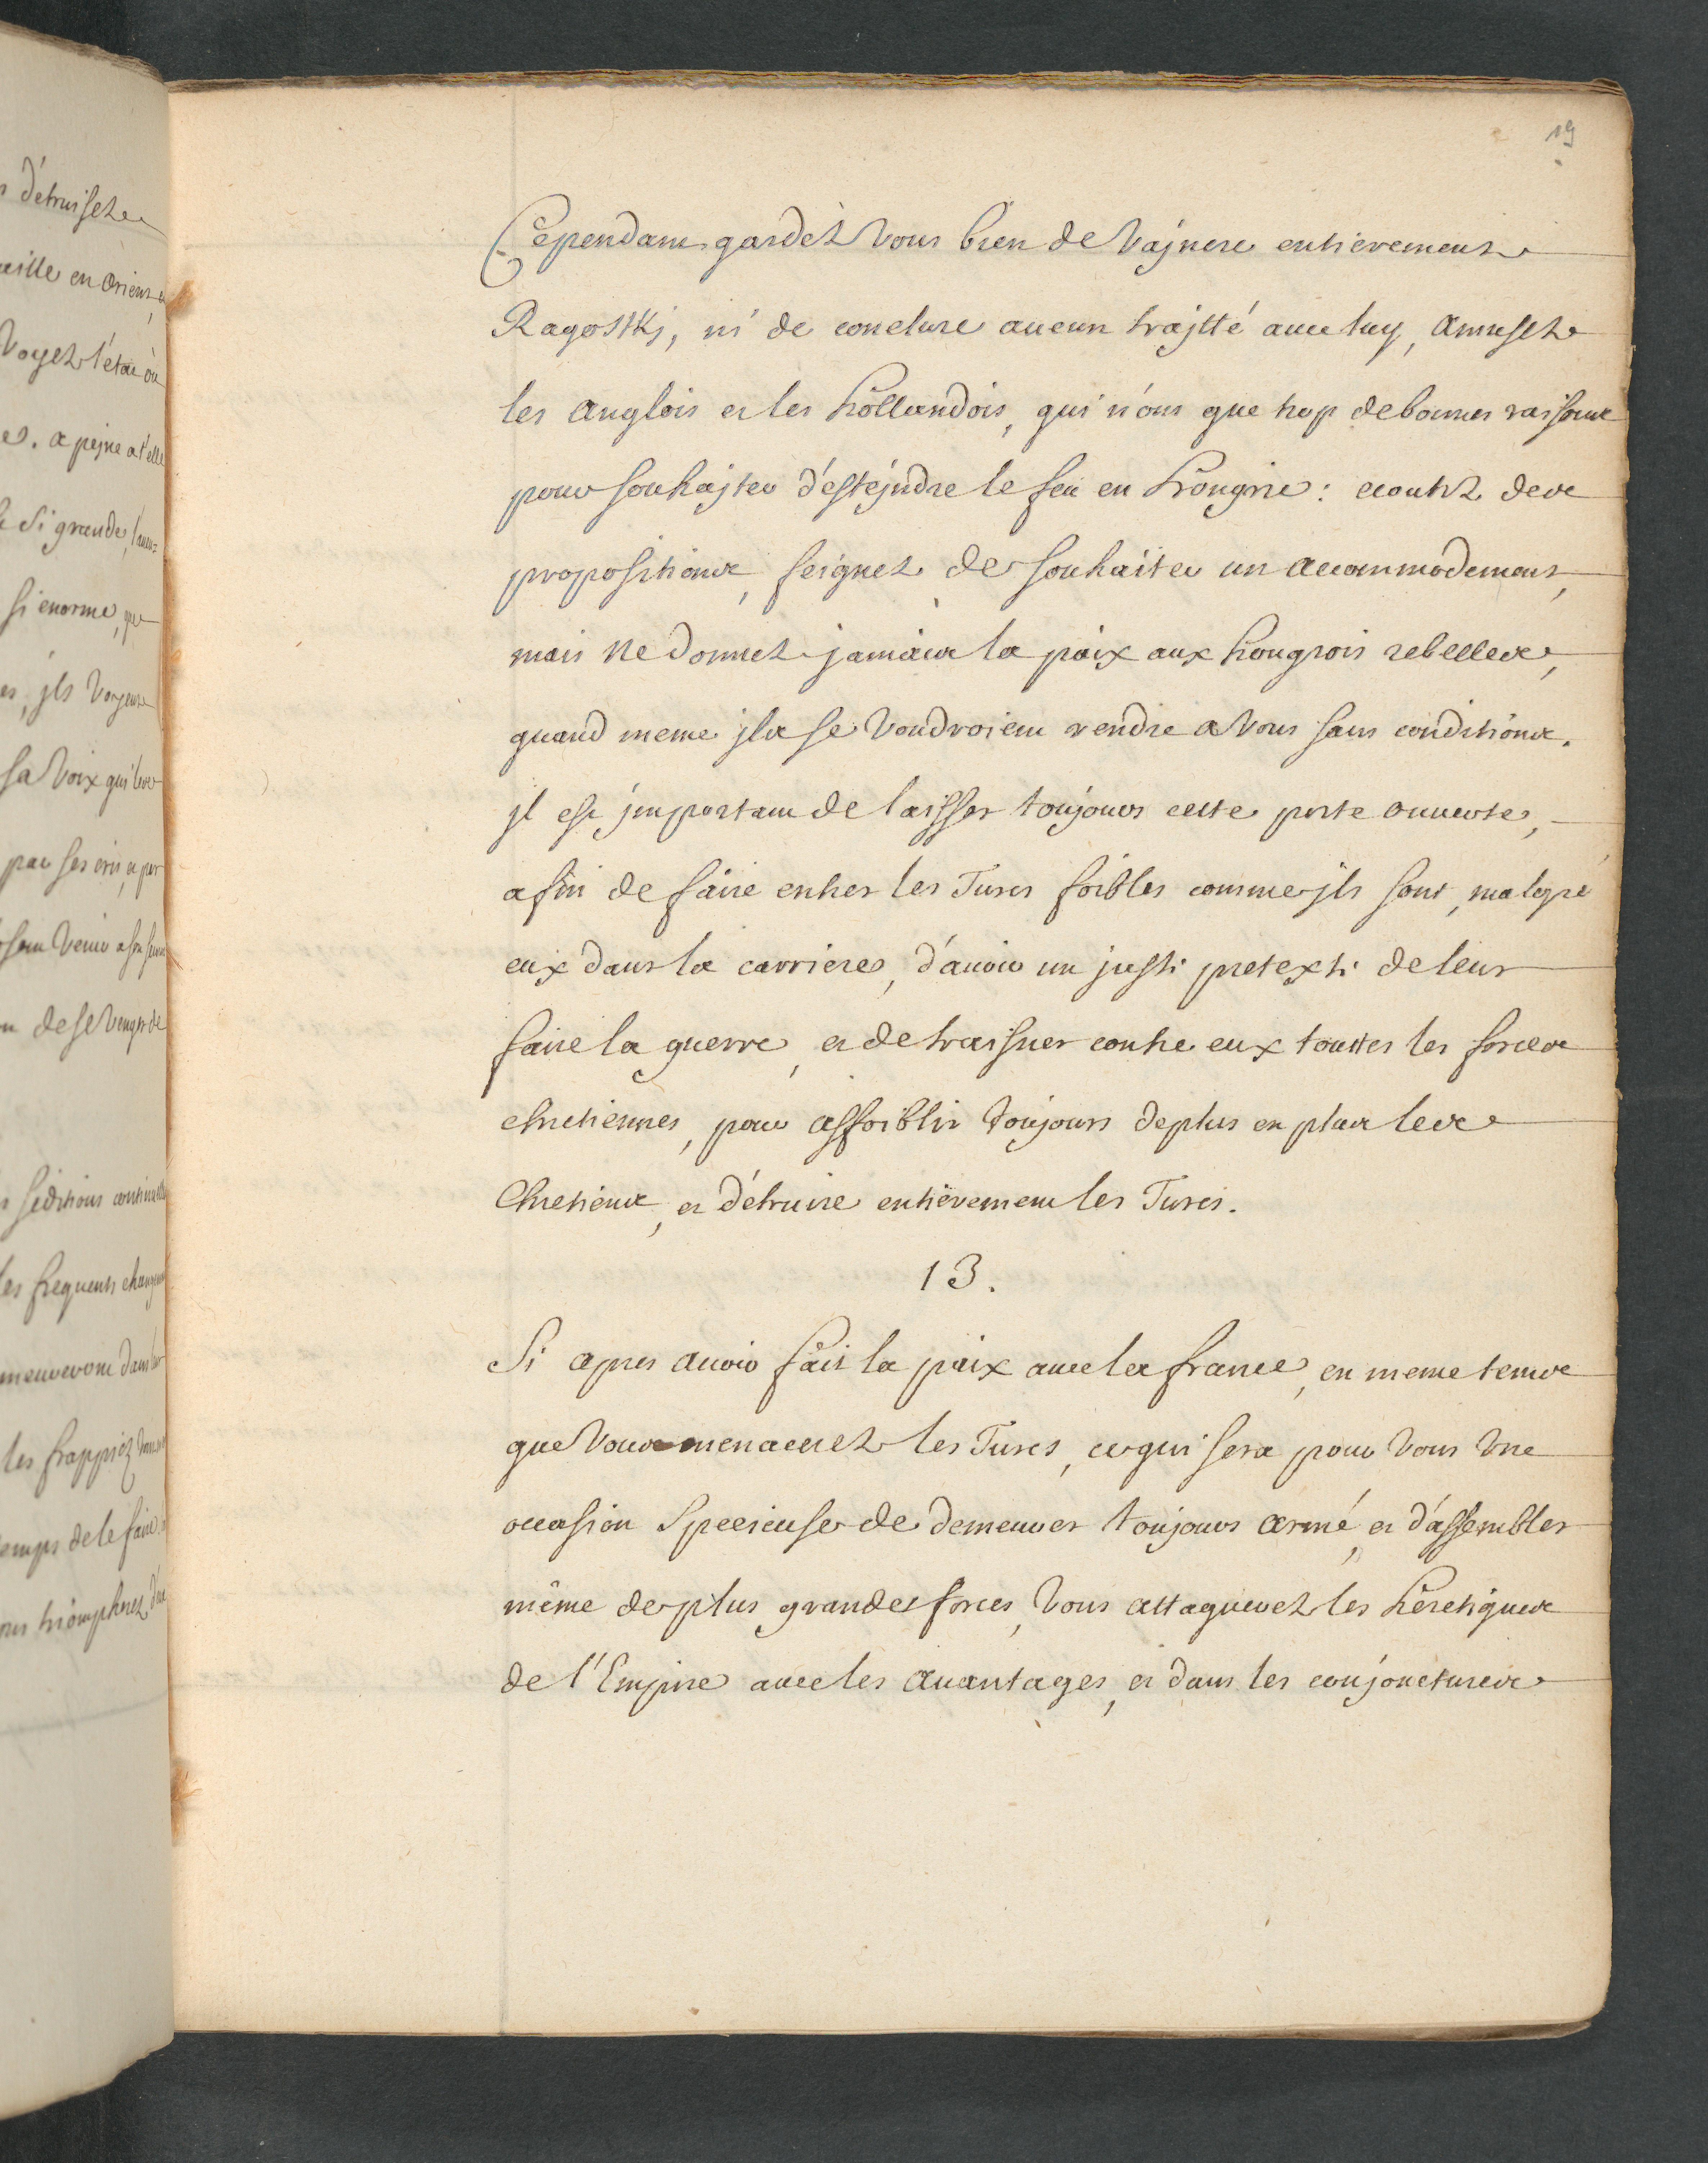 19
Cependant gardéz Vous bien de Vajncre entierement
Ragostkj, ni de conclure aucun trajtté avec luy, amusez
les Anglois et les hollandois, qui n'ont que trop de bonnes raisons
pour souhajter d'estejndre le feu en hongrie: ecoutez des
propositions, feignez de souhaiter un accommodement,
mais ne donnez jamais la paix aux hongrois rebelles,
quand meme jls se Voudroient rendre a Vous sans conditions.
jl est jmportant de laisser toujours cette porte ouverte,
afin de faire entrer les Turcs foibles comme jls sont, malgre
eux dans la carriere, d'avoir un juste pretexte de leur
faire la guerre, et de traisner contre eux touttes les forces
chretiennes, pour affoiblir toujours de plus en plus les
Chretiens, et détruire entierement les Turcs.
13.
Si apres avoir fait la paix avec la france, en meme tems
que Vous menacerez les Turcs, ce qui sera pour Vous Une
occasion Specieuse de demeurer toujours armé, et d'assembler
même de plus grandes forces, Vous attaquerez les héretiques
de l'Empire avec les avantages, et dans les conjonctures
détruisez
en Orient
Voyez l'état où
a pejne a t'elle
Si grande,
si enorme,
jls Voyent
sa Voix qui
par ses cris, et par
Venir a
de se Venger de
séditions
les frequents
dans
les frappiez
temps de le faire
triompherez